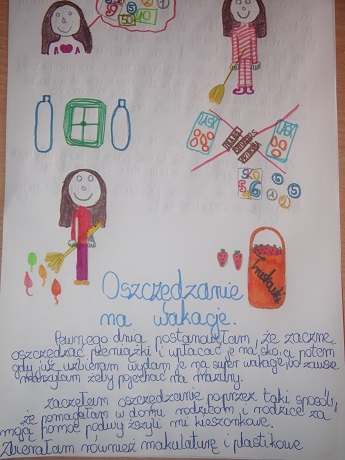 Oszczędzanie
na wakacje.
Pewnego dnia postanowiłam, że zacznę
oszczędzać pieniążki i wpłacać je na sko, a potem
gdy już uzbieram wydam je na super wakacje, bo zawsze
marzyłam żeby pojechać na Mazury.
Zaczęłam oszczędzanie poprzez taki sposób,
że pomagałam w domu rodzicom, a rodzice za
moją pomoc podwyższyli mi kieszonkowe.
Zbierałam również makulaturę i plastikowe
Truskawki